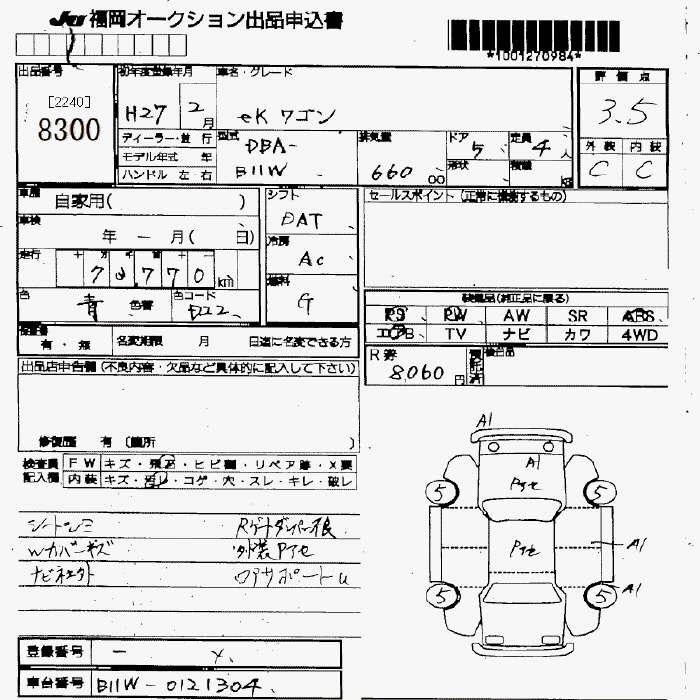 JU 福岡オークション出品申込書
*1001270984*
出品番号 初年度登録年月 車名・グレード 評価点
[2240]
8300
H27 2月 eK ワゴン 3.5
ディーラー・並行 型式 DBA- 排気量 ドア 定員 外装 内装
モデル年式 年 5 4人
ハンドル 左 右 B11W 660 00 形状 積載 kg C C
車歴 自家用( ) シフト DAT セールスポイント(正常に機能するもの)
車検 年 - 月( 日) 冷房 AC
走行 十 万 千 百 十 km 燃料 G
色 青 色替 色コード 装備品(純正品に限る)
PS PW AW SR ABS
エアB TV ナビ カワ 4WD
保証書 有・無 名変期限 月 日迄に名変できる方
R券 8060円 検出品
出品店申告欄(不良内容・欠品など具体的に記入して下さい)
修復歴 有 (箇所 )
検査員 FW キズ・飛石・ヒビ割・リペア跡・X要
記入欄 内装 キズ・汚レ・コゲ・穴・スレ・キレ・破レ
A1
A1
Pアセ
5 5
Pアセ
A1
5 5 A1
シートシミ Rゲートダンパー根
Wカバーキズ 外装Pアセ
登録番号 -
車台番号 B11W-0121304